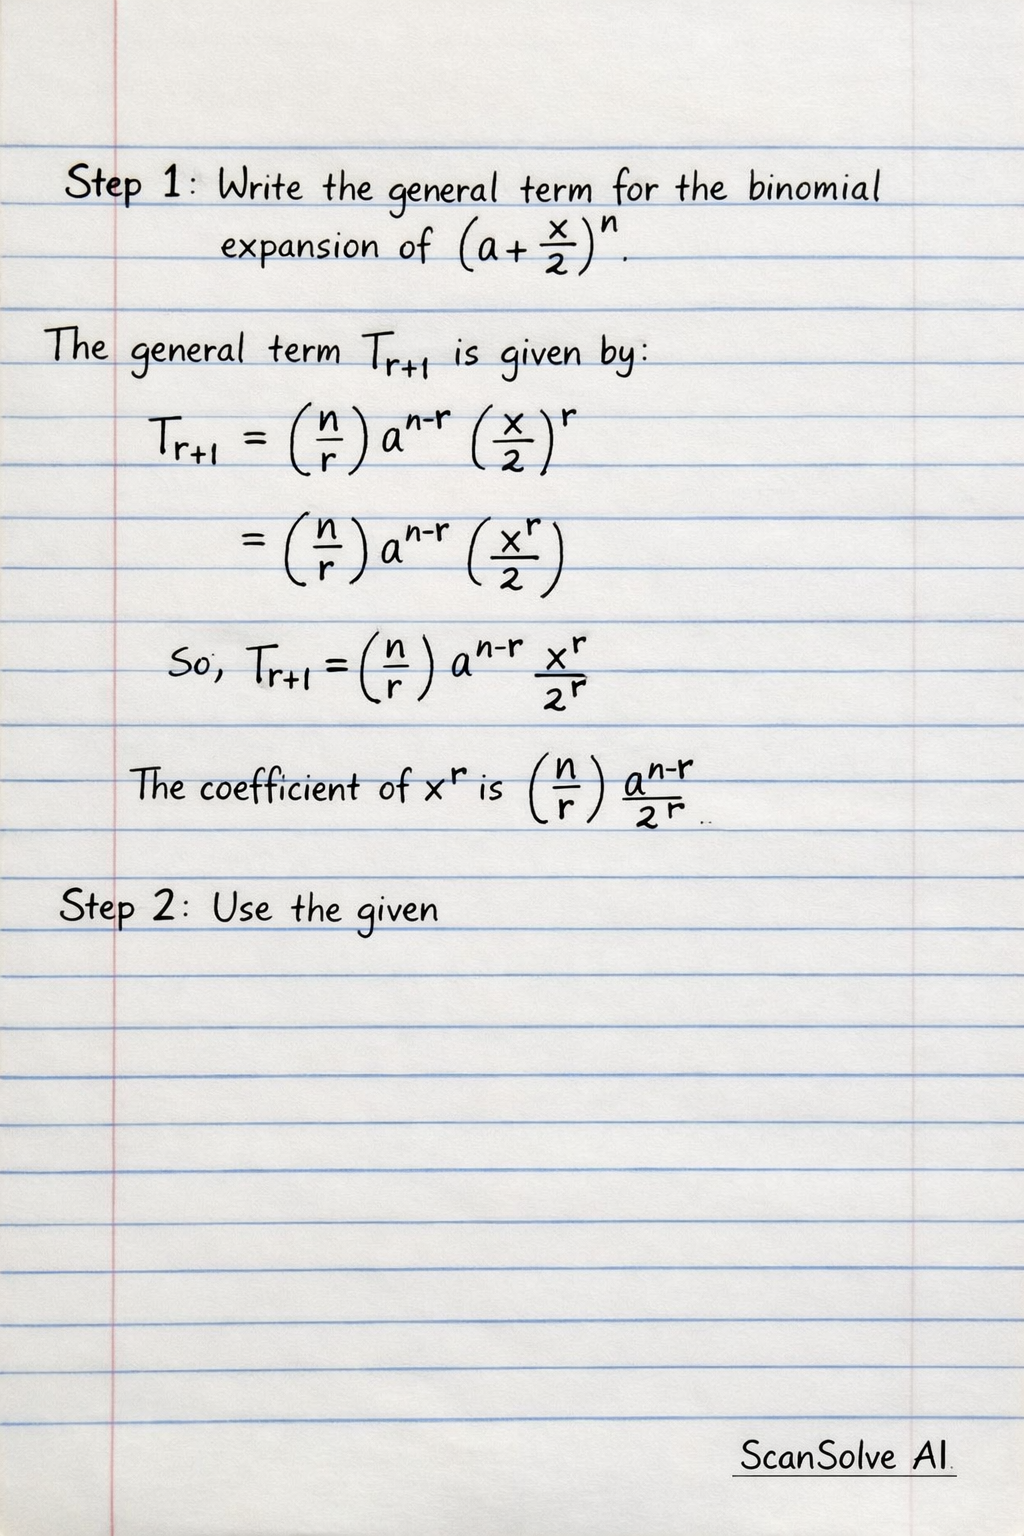 Step 1: Write the general term for the binomial
expansion of (a + x/2)^n.
The general term T_{r+1} is given by:
T_{r+1} = (n/r) a^{n-r} (x/2)^r
= (n/r) a^{n-r} (x^r/2)
So, T_{r+1} = (n/r) a^{n-r} x^r/2^r
The coefficient of x^r is (n/r) a^{n-r}/2^r ..
Step 2: Use the given
ScanSolve AI.